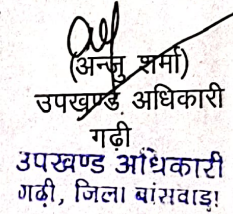 (अन्जु शर्मा)
उपखण्ड अधिकारी
गढ़ी
उपखण्ड अधिकारी
गढ़ी, जिला बांसवाड़ा